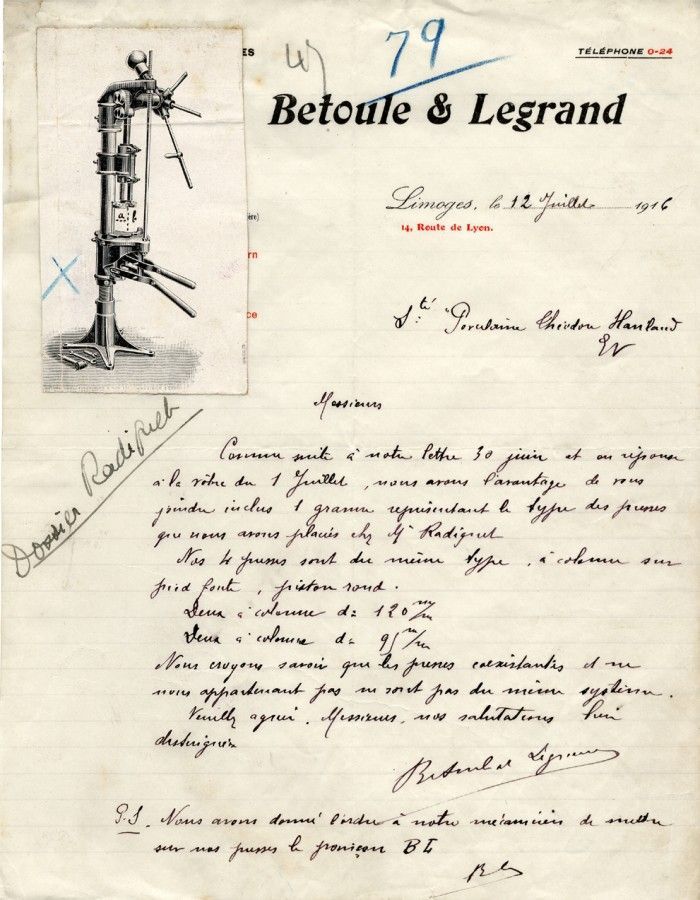 ES
TÉLÉPHONE 0-24
79
Betoule & Legrand
Limoges, le 12 Juillet 1916
14, Route de Lyon.
ère)
rn
ce
a b
X
Sté Porcelaine Theodore Haviland
EV
Dossier Radiguet
Messieurs
Comme suite à notre lettre 30 juin et en réponse
à la vôtre du 1 Juillet, nous avons l'avantage de vous
joindre inclus 1 gravure représentant le type des presses
que nous avons placées chez Mr Radiguet
Nos 4 presses sont du même type, à colonne sur
pied fonte, piston rond.
Deux à colonne d= 120 m/m
Deux à colonne d= 95 m/m
Nous croyons savoir que les presses coexistantes et ne
nous appartenant pas ne sont pas du même système.
Veuillez agréer, Messieurs, nos salutations bien
distinguées
Betoule et Legrand
P.S. Nous avons donné l'ordre à notre mécanicien de mettre
sur nos presses le poinçon BL